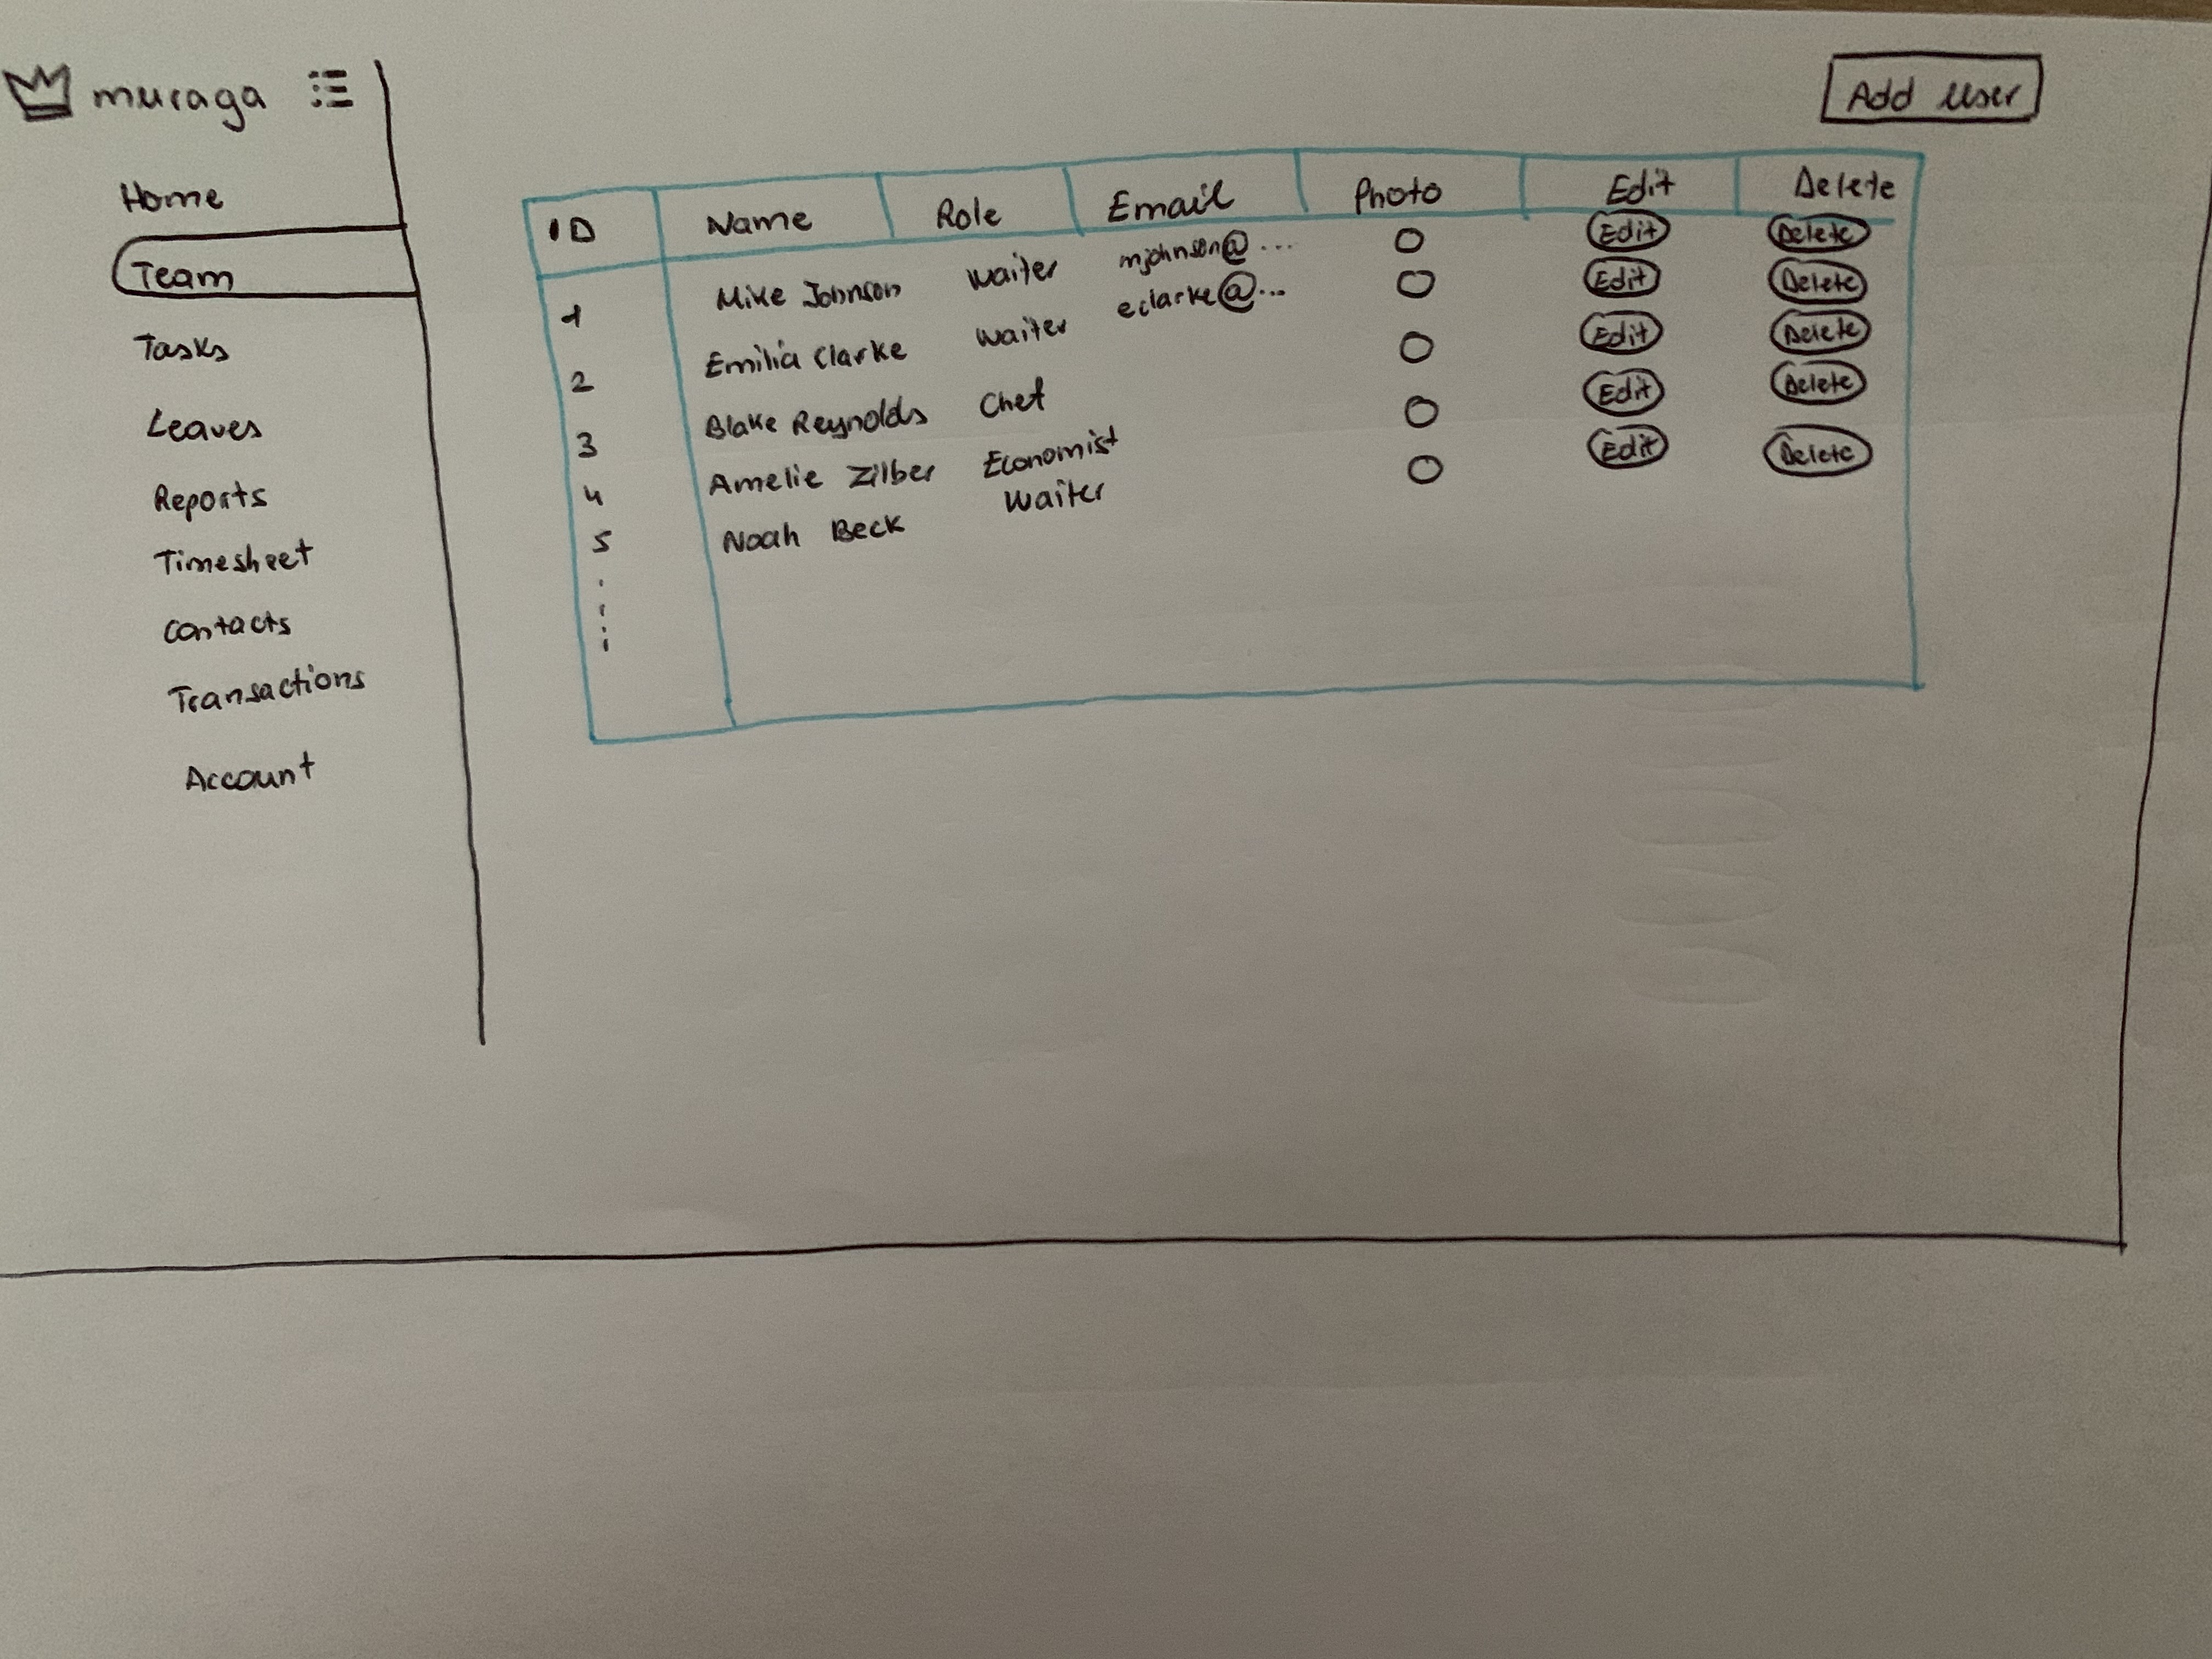 muraga
Home
Team
Tasks
Leaves
Reports
Timesheet
contacts
Transactions
Account
Add User
ID Name Role Email Photo Edit Delete
1 Mike Johnson waiter mjohnson@... Edit Delete
2 Emilia Clarke waiter eclarke@... Edit Delete
3 Blake Reynolds Chef Edit Delete
4 Amelie Zilber Economist Edit Delete
5 Noah Beck waiter Edit Delete